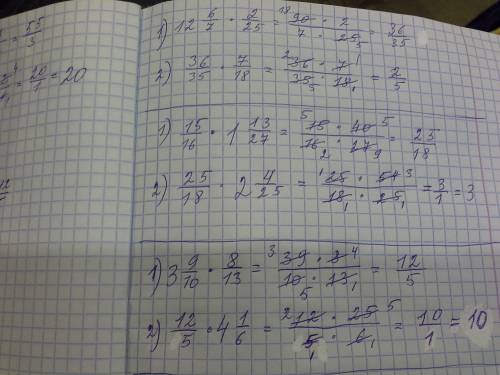 = 55/3
= 20/1 = 20
1) 12 6/7 · 2/25 = 18 90 · 2 / 7 · 25 5 = 36/35
2) 36/35 · 7/18 = 2 36 · 7 1 / 35 5 · 18 1 = 2/5
1) 15/16 · 1 13/27 = 5 15 · 40 5 / 16 2 · 27 9 = 25/18
2) 25/18 · 2 4/25 = 1 25 · 54 3 / 18 1 · 25 1 = 3/1 = 3
1) 3 9/10 · 8/13 = 3 39 · 8 4 / 10 5 · 13 1 = 12/5
2) 12/5 · 4 1/6 = 2 12 · 25 5 / 5 1 · 6 1 = 10/1 = 10